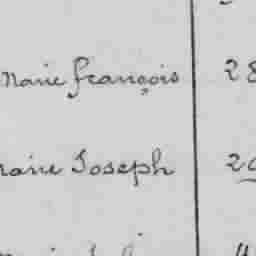 Marie François 28
Marie Joseph 29